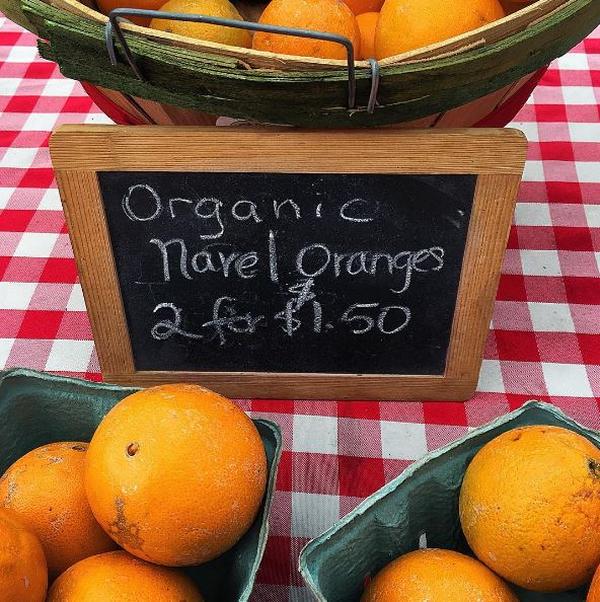 Organic
Navel Oranges
2 for $1.50